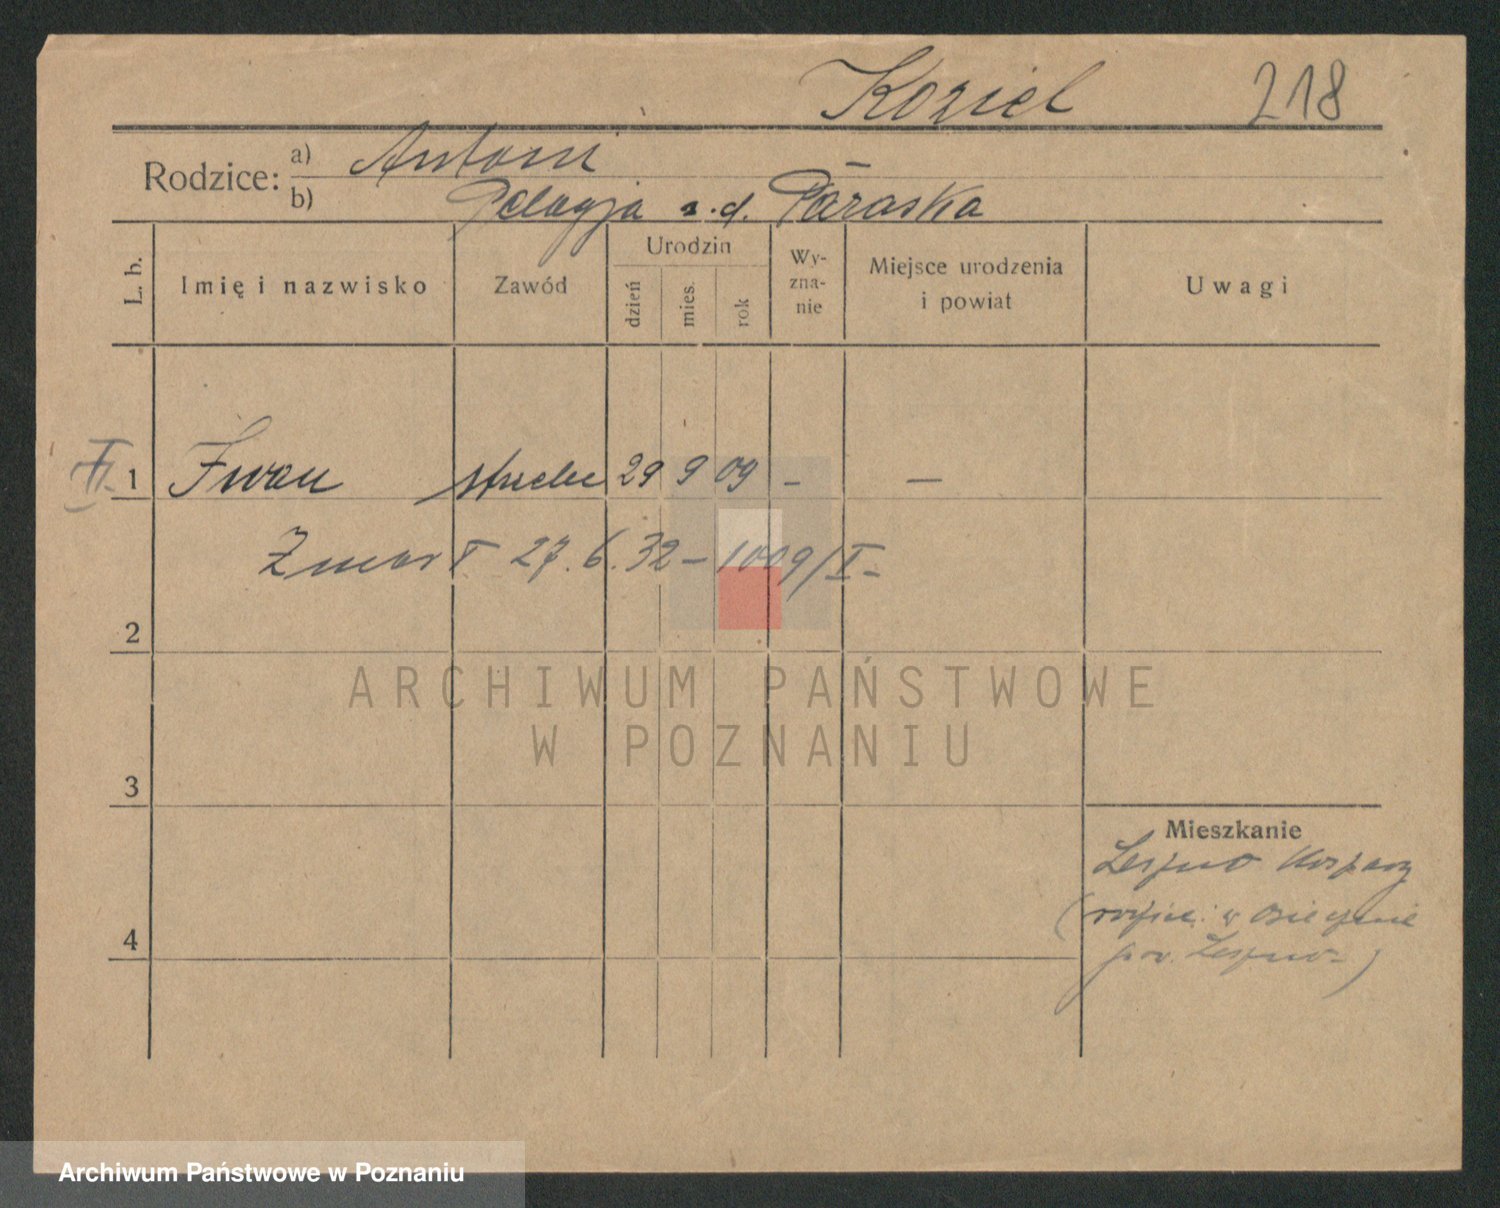 Koziel 218
Rodzice: a) Antoni
b) Pelagja z.d. Paraska
L. b. Imię i nazwisko Zawód Urodzin dzień mies. rok Wyznanie Miejsce urodzenia i powiat Uwagi
II 1 Iwan 29 9 09 - -
Zmarł 27.6.32 - 1009/I-
2
3
4
Mieszkanie
Leszno
pow. Leszno)
ARCHIWUM PAŃSTWOWE
W POZNANIU
Archiwum Państwowe w Poznaniu